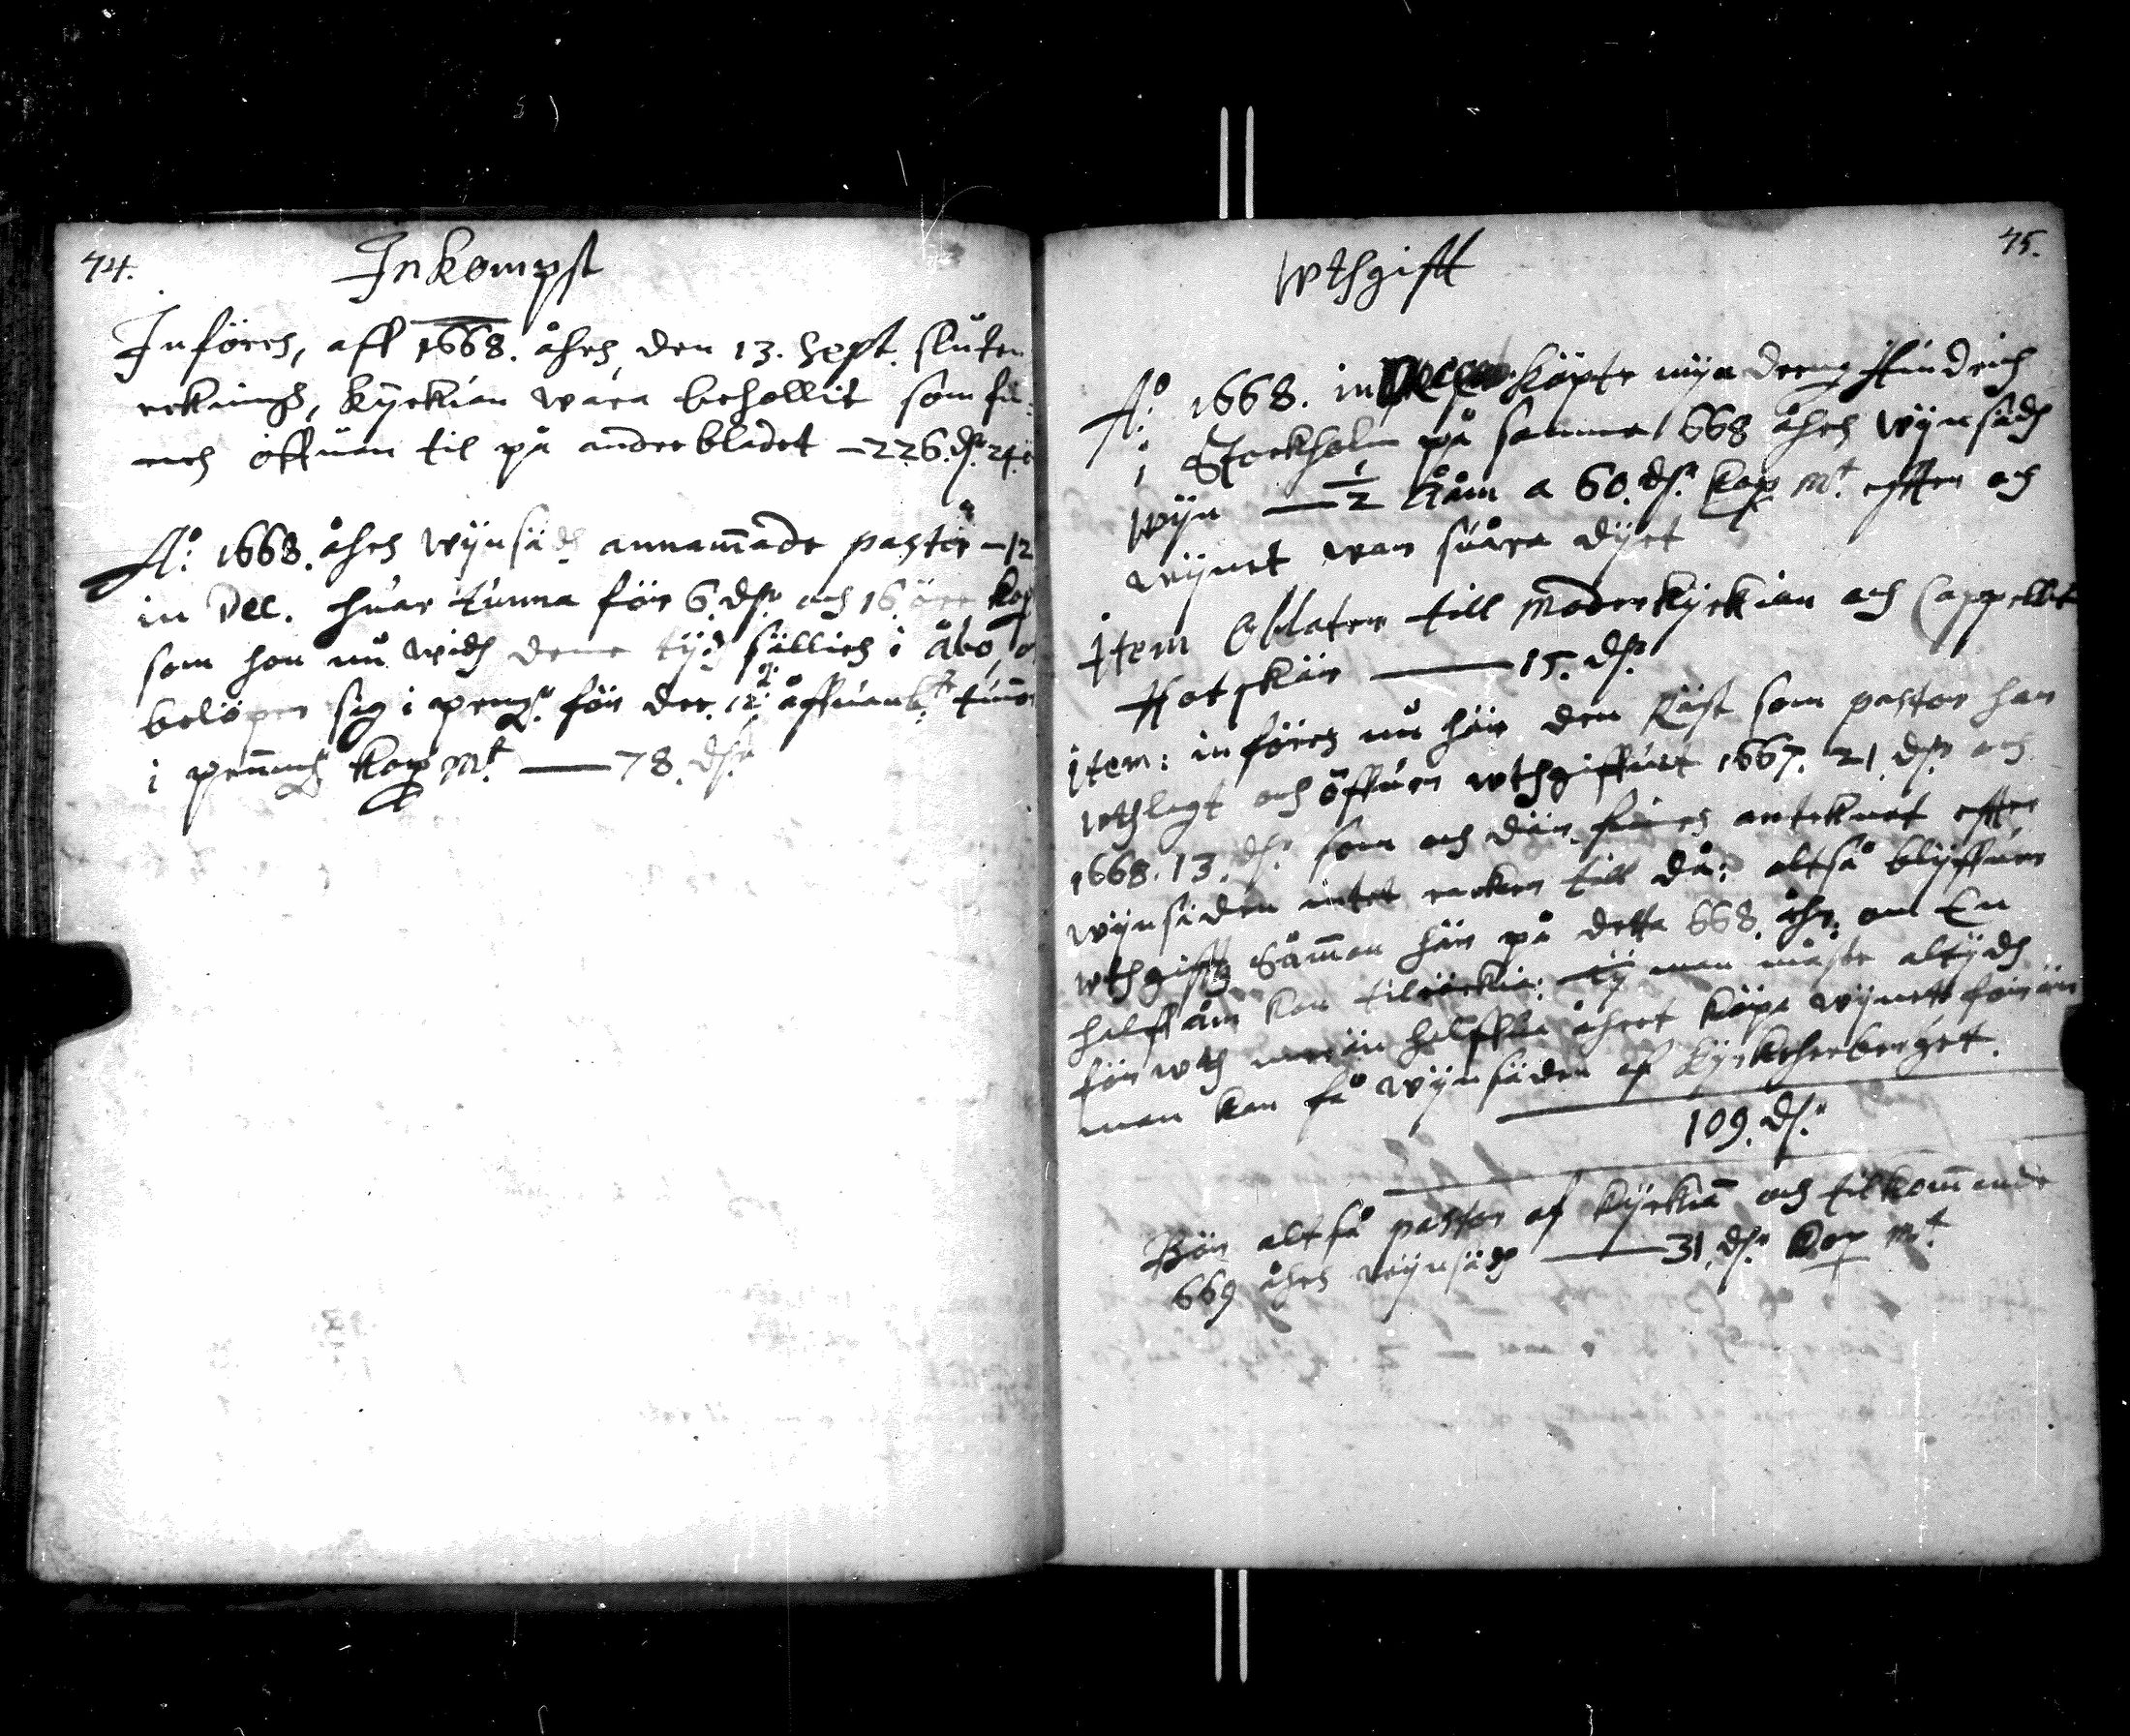 74.
Inkompst
Införes, aff 1668. åhrs, den 13. Sept. sluten
rekningh, kyrkian wara behollit som fin¬
nes öffuan til på andre bladet — 226. dr. 24. ö
A:o 1668. åhrs wynsädh annammade pastor — 12
in Dec. huar tunna för 6. dr. och 16 öre kop
som hon nu widh denne tijd sällies i Åbo,
belöper sig i peng:r för de 12 åffuanb:te tunnor
i penningh kop m:t — 78. dr.
75.
Wthgifft
A:o 1668. in Decem. köpte myn dreng Hindrich
i Stockholm på samma 1668 åhrs wynsädh
wyn — 1/2 Åm a 60. dr. kop m:t efter och
wynet war suåra dyrt
Item Oblater till moderkyrkian och Cappellet
Hotskär — 15. dr.
Item: införes nu här den Räst som pastor har
wthlagt och öffuer wthgiffuit 1667. 21. dr. och
1668. 13. dr. som och där finnes anteknat effter
wynsäden intet recker till då: altså blyffuer
wthgifftz Summan här på detta 668. åhr, om En
halff åm kan tilräckia: ty man måste altydh
för wth meer än halffta åhret köpa wynett för än
man kan få wynsäden af kyrkeherberget.
109. dr.
Bör altså pastor af kyrkian och tilkommande
669 åhrs wynsädh — 31. dr. kop m:t